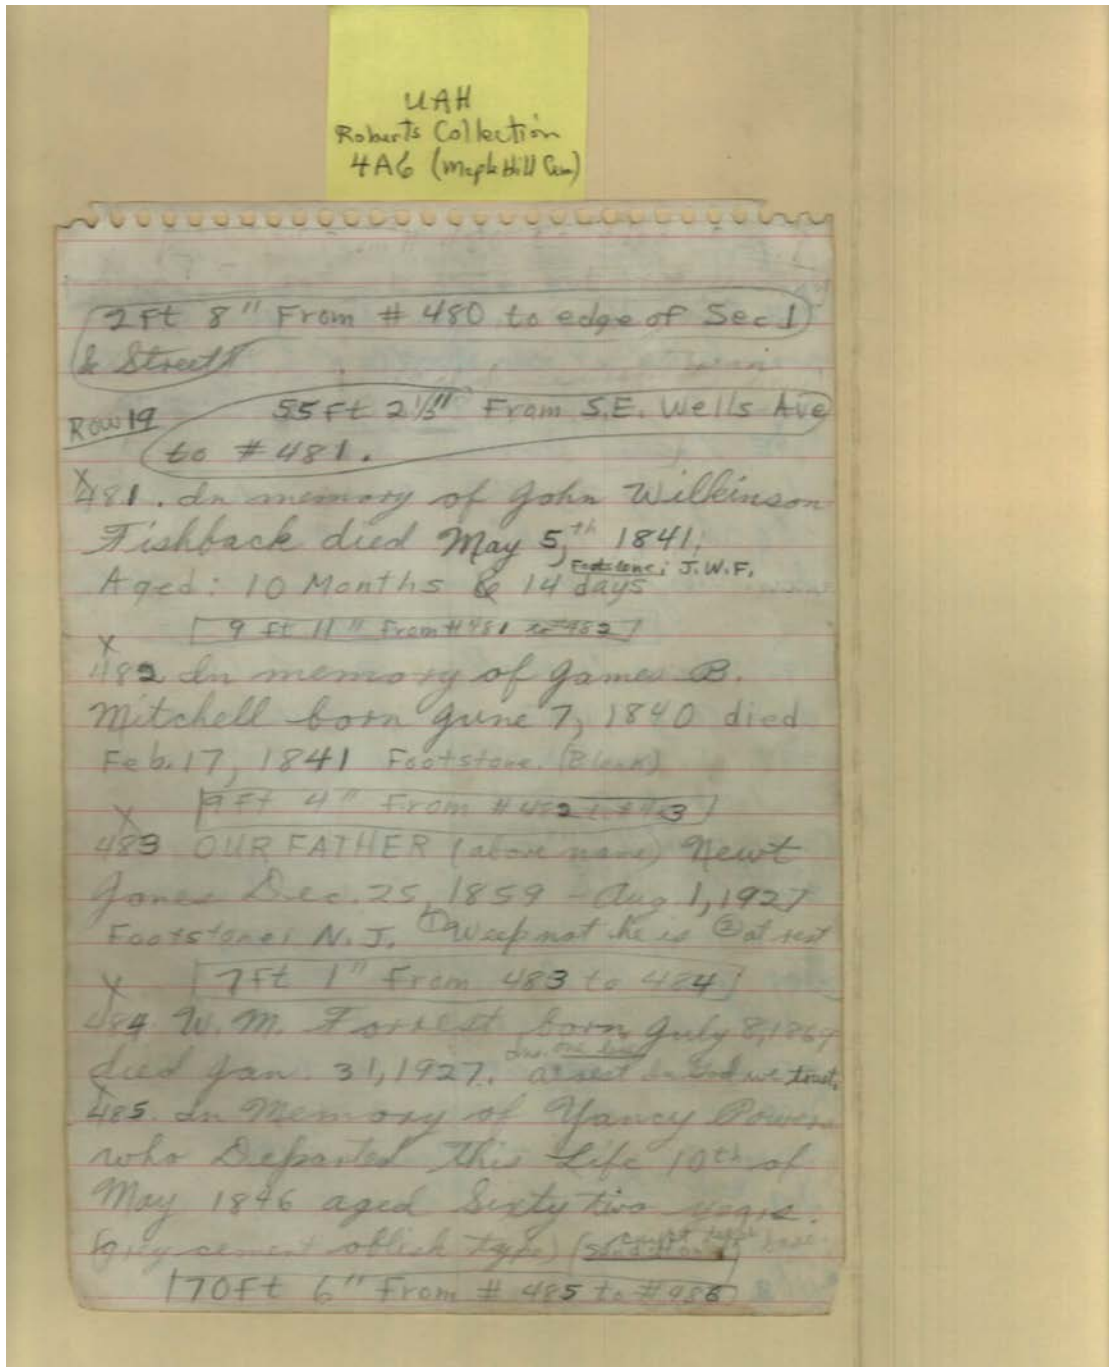 UAH
Roberts Collection
4A6 (Maple Hill Cem)
2 Ft 8" From # 480 to edge of Sec 1
& Street
Row 19
55 Ft 2 1/3" From S.E. Wells Ave
to # 481.
481. In memory of John Wilkinson
Fishback died May 5,th 1841;
Footstone; J.W.F.
Aged: 10 Months & 14 days
9 Ft 11" From # 481 to #482
482 In memory of James B.
Mitchell born June 7, 1840 died
Feb. 17, 1841 Footstone. (Blank)
9 Ft 4" From # 482 to #483
483 OUR FATHER (above name) Newt
Jones Dec. 25, 1859 - Aug 1, 1927
Footstone; N. J. ① Weep not he is ② at rest
7 Ft 1" From 483 to 484
484 W. M. Forrest born July 8, 1869
one line
died Jan. 31, 1927. at rest In God we trust.
485. In Memory of Yancy Powers
who Departed This Life 10th of
May 1846 aged Sixty two years.
(grey cement oblisk type) base
170 Ft 6" From # 485 to #986